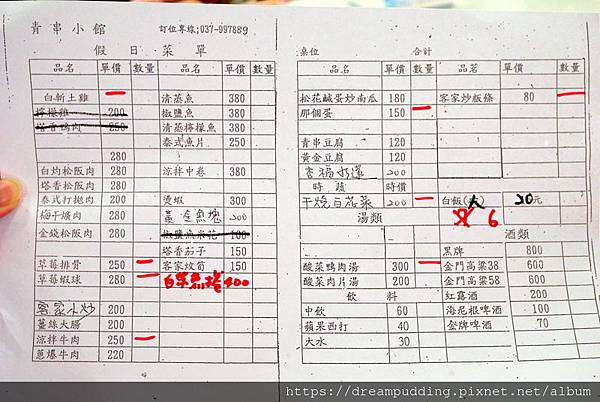 青串小館 訂位專線:037-997889
假日菜單
品名 單價 數量 品名 單價 數量
白斬土雞 清蒸魚 380
檸檬雞 200 椒鹽魚 380
塔香鴨肉 250 清蒸檸檬魚 380
泰式魚片 250
280
白灼松阪肉 280 涼拌中卷 380
塔香松阪肉 280
泰式打拋肉 200 燙蝦 300
梅干爌肉 200 黃金魚塊 200
金錢松阪肉 280 椒鹽魚米花 100
塔香茄子 150
草莓排骨 250 客家炆筍 150
草莓蝦球 280 400
客家小炒 200
薑絲大腸 200
涼拌牛肉 250
蔥爆牛肉 220
桌位 合計
品名 單價 數量 品茗 單價 數量
松花鹹蛋炒南瓜 180 客家炒粄條 80
那個蛋 150
青串豆腐 120
黃金豆腐 120
幸福水蓮 200
時蔬 時價
干燒白菜 200 白飯(大) 30元
6
湯類 酒類
黑牌 800
酸菜鴨肉湯 300 金門高粱38 600
酸菜肉片湯 200 金門高粱58 600
飲料 紅露酒 200
中飲 60 海尼根啤酒 100
蘋果西打 40 台牌啤酒 70
大水 30
https://dreampudding.pixnet.net/album